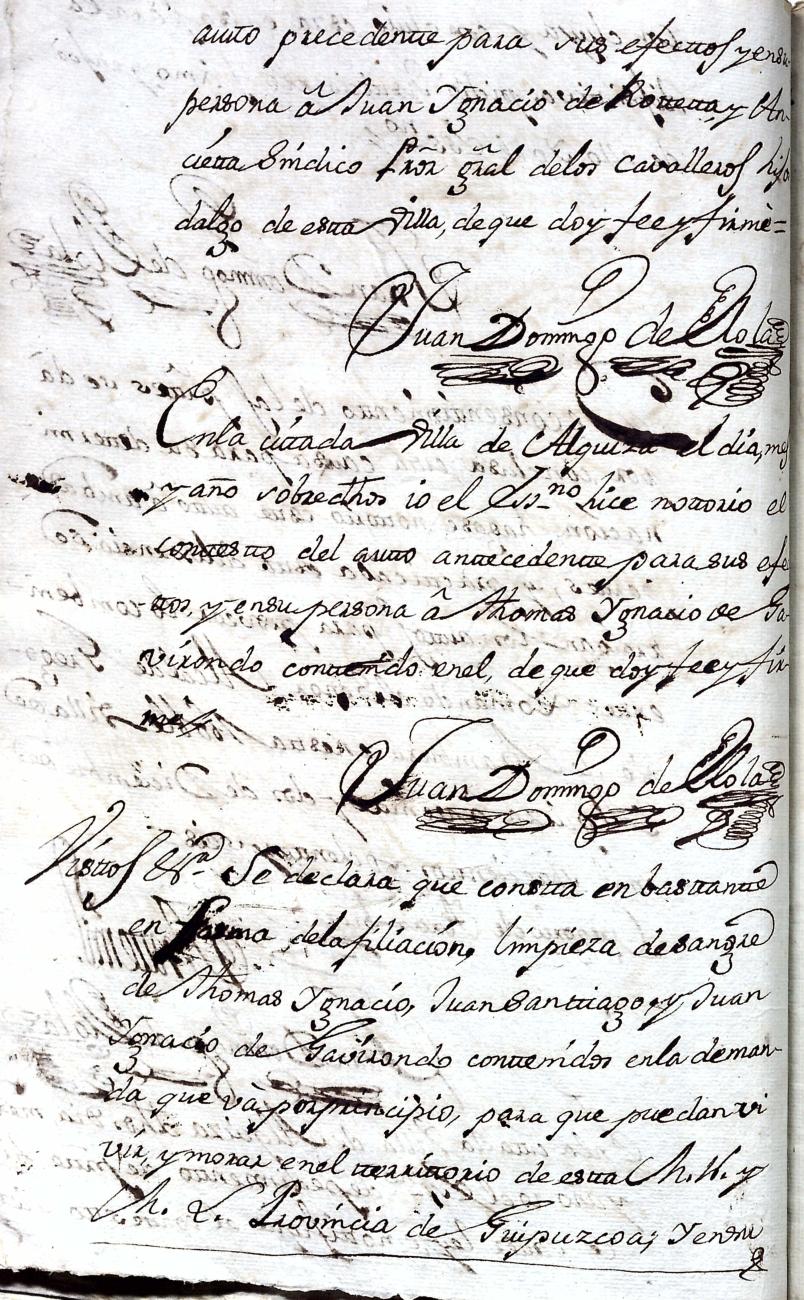 autto precedentte para sus efecttos y en su
persona â Juan Ygnacio de Rotteta, y An-
cietta Síndico Pror. gral de los Cavalleros hijos
dalgo de estta Villa, de que doy fee y firmè=
Juan Domingo de Llola
En la cittada Villa de Alquiza el dia, mes
y año sobre dhos io el Essno. hice nottorio el
conttestto del autto anttecedentte para sus efe
ttos, y en su persona â Thomas Ygnacio de Ga-
virondo conttenido en el, de que doy fee y fir-
me/
Juan Domingo de Llola
Visttos &ra. Se declara que constta en basttantte
en forma de la filiación, limpieza de sangre
de Thomas Ygnacio, Juan Santtiago, y Juan
Ygnacio de Gavirondo conttenidos en la deman-
da que và por principio, para que puedan vi
vir, y morar en el territtorio de estta M. N. y
M. L. Província de Guipuzcoa; y en su